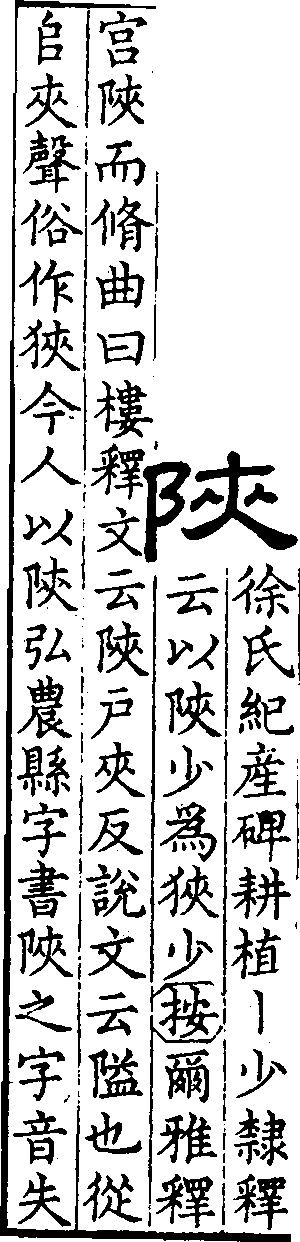 陜
徐氏紀產碑耕植丨少隸釋
云以陜少爲狹少按爾雅釋
宫陜而脩曲曰樓釋文云陜戸夾反說文云隘也從
𨸏夾聲俗作狹今人以陜弘農縣字書陜之字音失